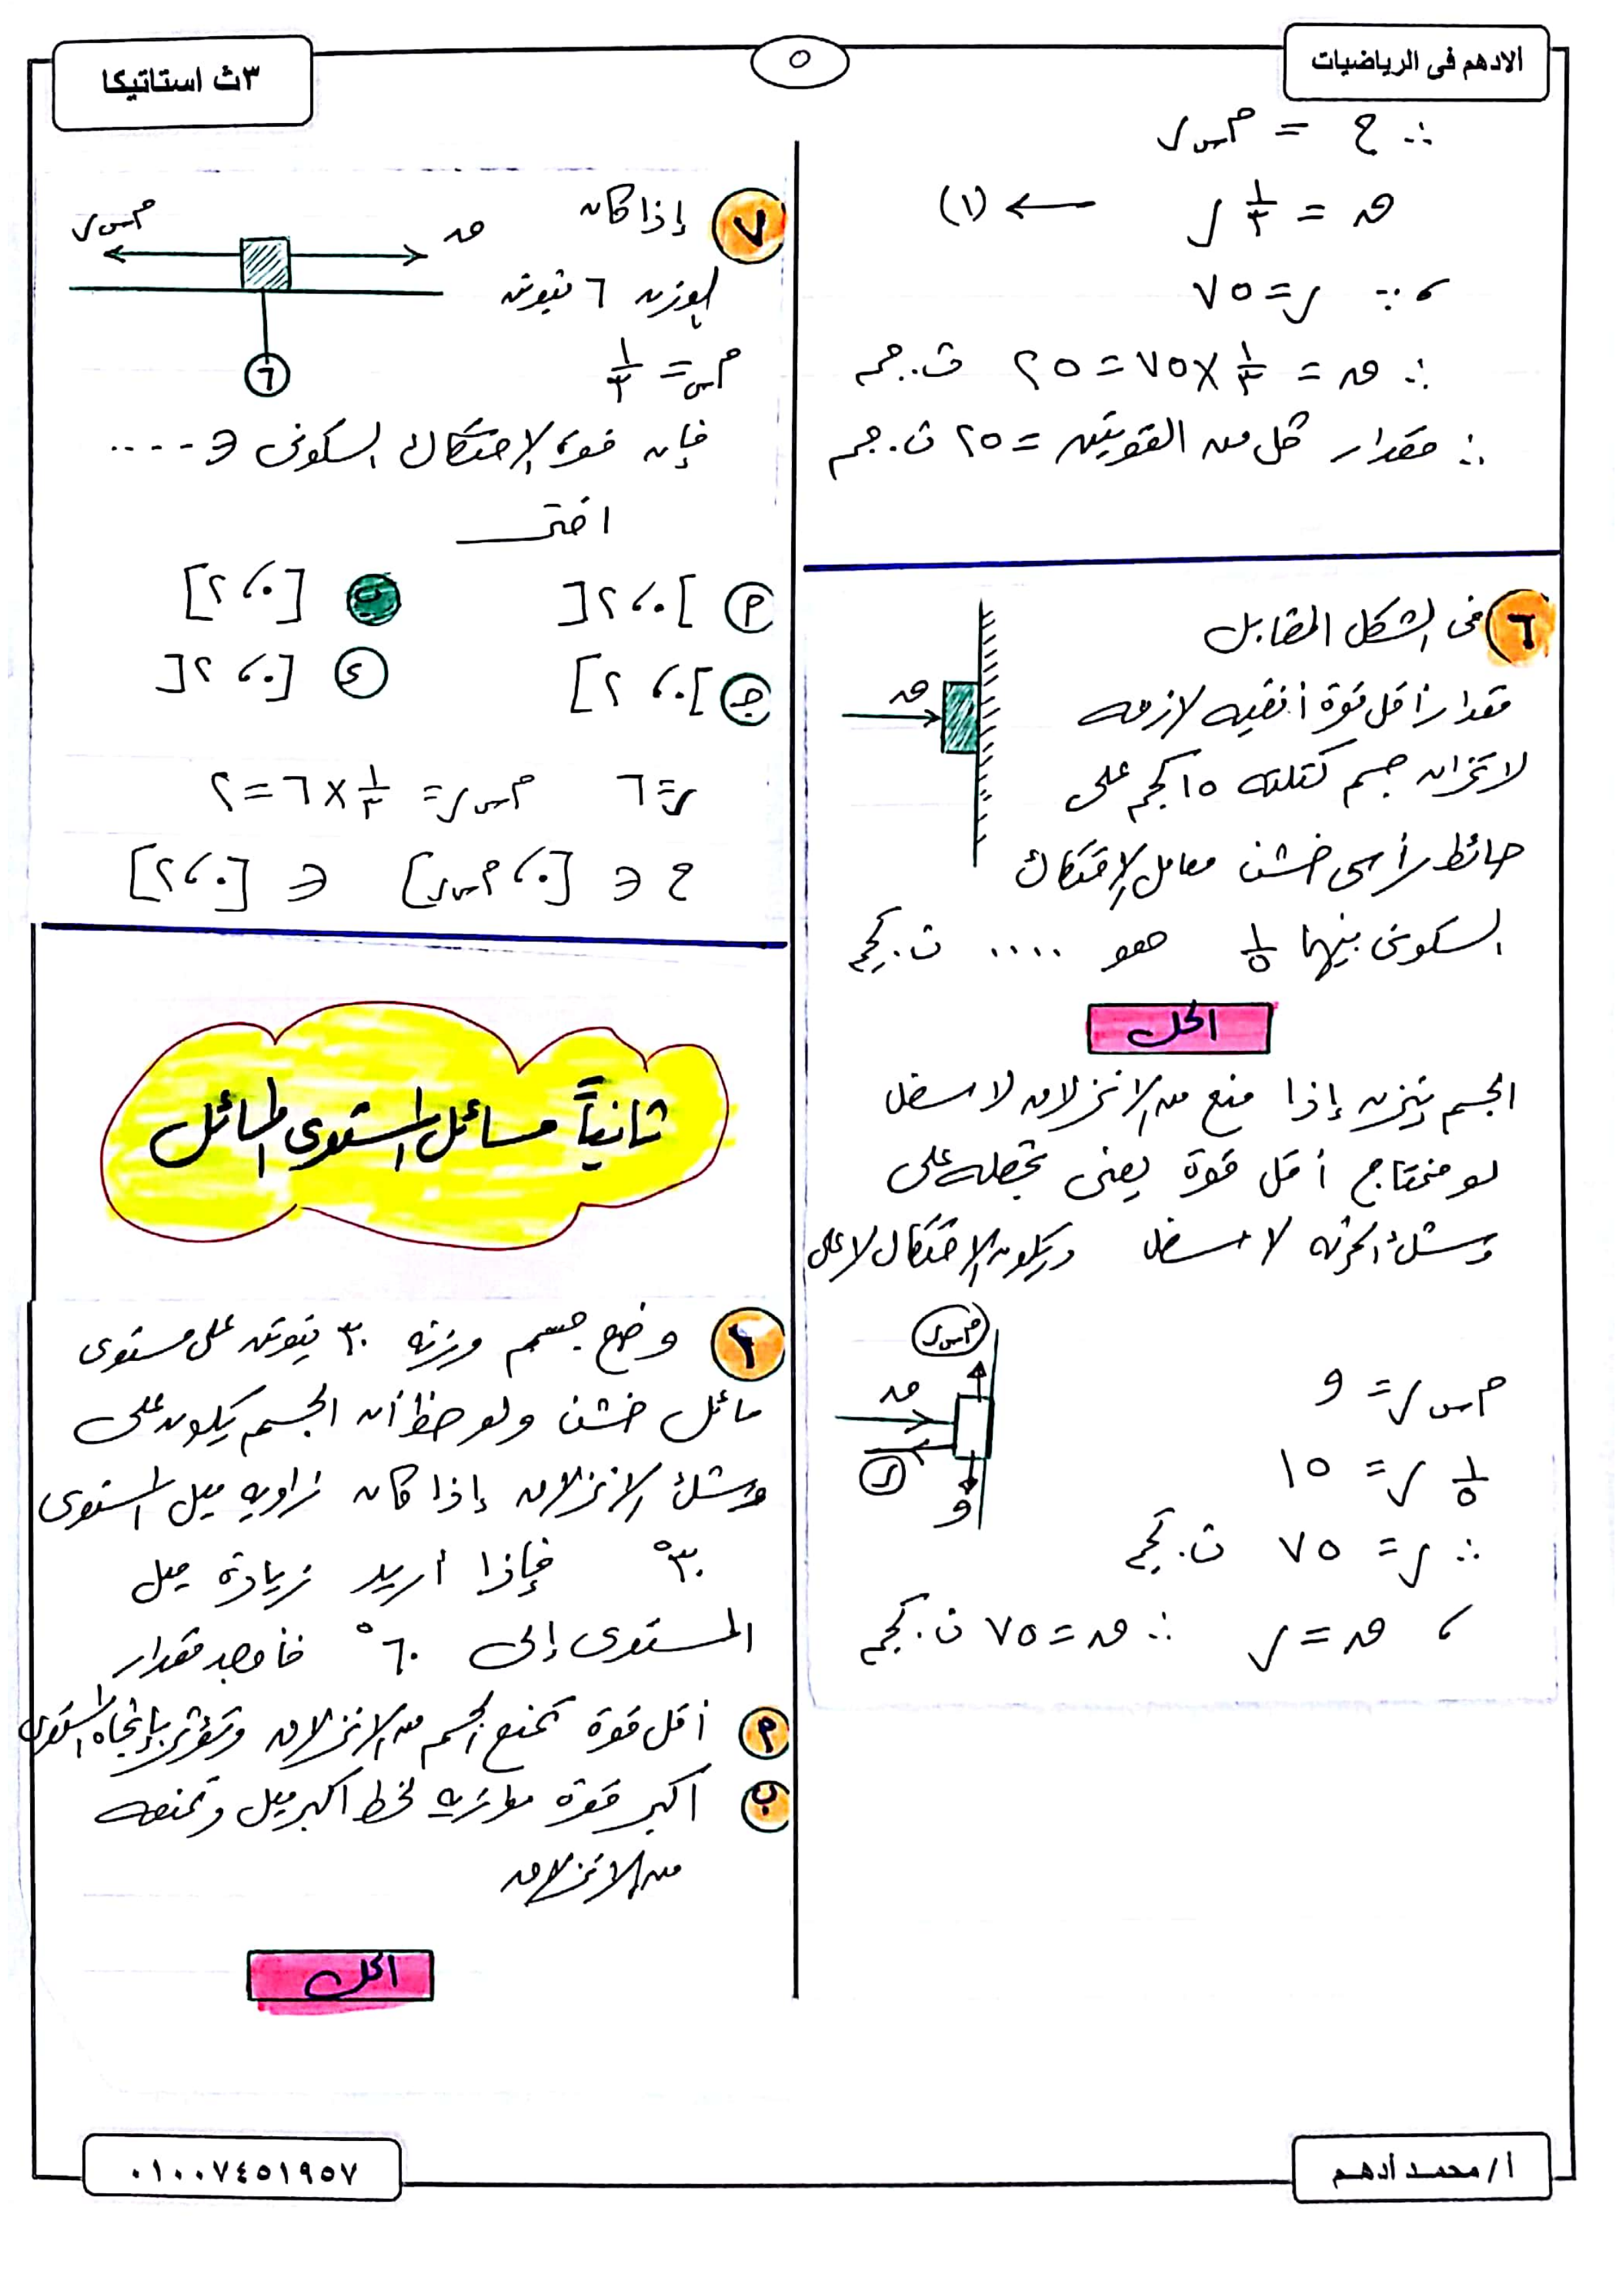 الادهم فى الرياضيات
٥
٣ث استاتيكا
∴ ح = م س ر
ق = ١/٣ ر ← (١)
، ∵ ر = ٧٥
∴ ق = ١/٣ × ٧٥ = ٢٥ ث.جم
∴ مقدار كل من القوتين = ٢٥ ث.جم
٦ فى الشكل المقابل
مقدار أقل قوة أفقيه لازمه
لاتزان جسم كتلته ١٥ كجم على
حائط رأسى خشن معامل الاحتكاك
السكونى بينهما ١/٥ هو .... ث.كجم
ق
الحل
الجسم يتزن إذا منع من الانزلاق لاسفل
لو محتاج أقل قوة يعنى تجعله على
وشك الحركه لاسفل ويكون الاحتكاك لاعلى
م س ر
ق
ر
و
م س ر = و
١/٥ ر = ١٥
∴ ر = ٧٥ ث.كجم
، ق = ر ∴ ق = ٧٥ ث.كجم
٧ إذا كان
الوزن ٦ نيوتن
م س = ١/٣
م س ر
ق
٦
فإن قوة الاحتكاك السكونى ∈ ....
اختر
أ ]٠، ٢[ ب [٠، ٢]
ج ]٠، ٢] د [٠، ٢[
ر = ٦ م س ر = ١/٣ × ٦ = ٢
ح ∈ [٠، م س ر] ∈ [٠، ٢]
ثانياً مسائل المستوى المائل
١ وضع جسم وزنه ٣٠ نيوتن على مستوى
مائل خشن ولوحظ أن الجسم يكون على
وشك الانزلاق إذا كان زاويه ميل المستوى
٣٠° فإذا أريد زيادة ميل
المستوى إلى ٦٠° فأوجد مقدار
أ أقل قوة تمنع الجسم من الانزلاق وتؤثر بإتجاه المستوى
ب أكبر قوة موازيه لخط اكبر ميل وتمنعه
من الانزلاق
الحل
أ/ محمد أدهم
٠١٠٠٧٤٥١٩٥٧